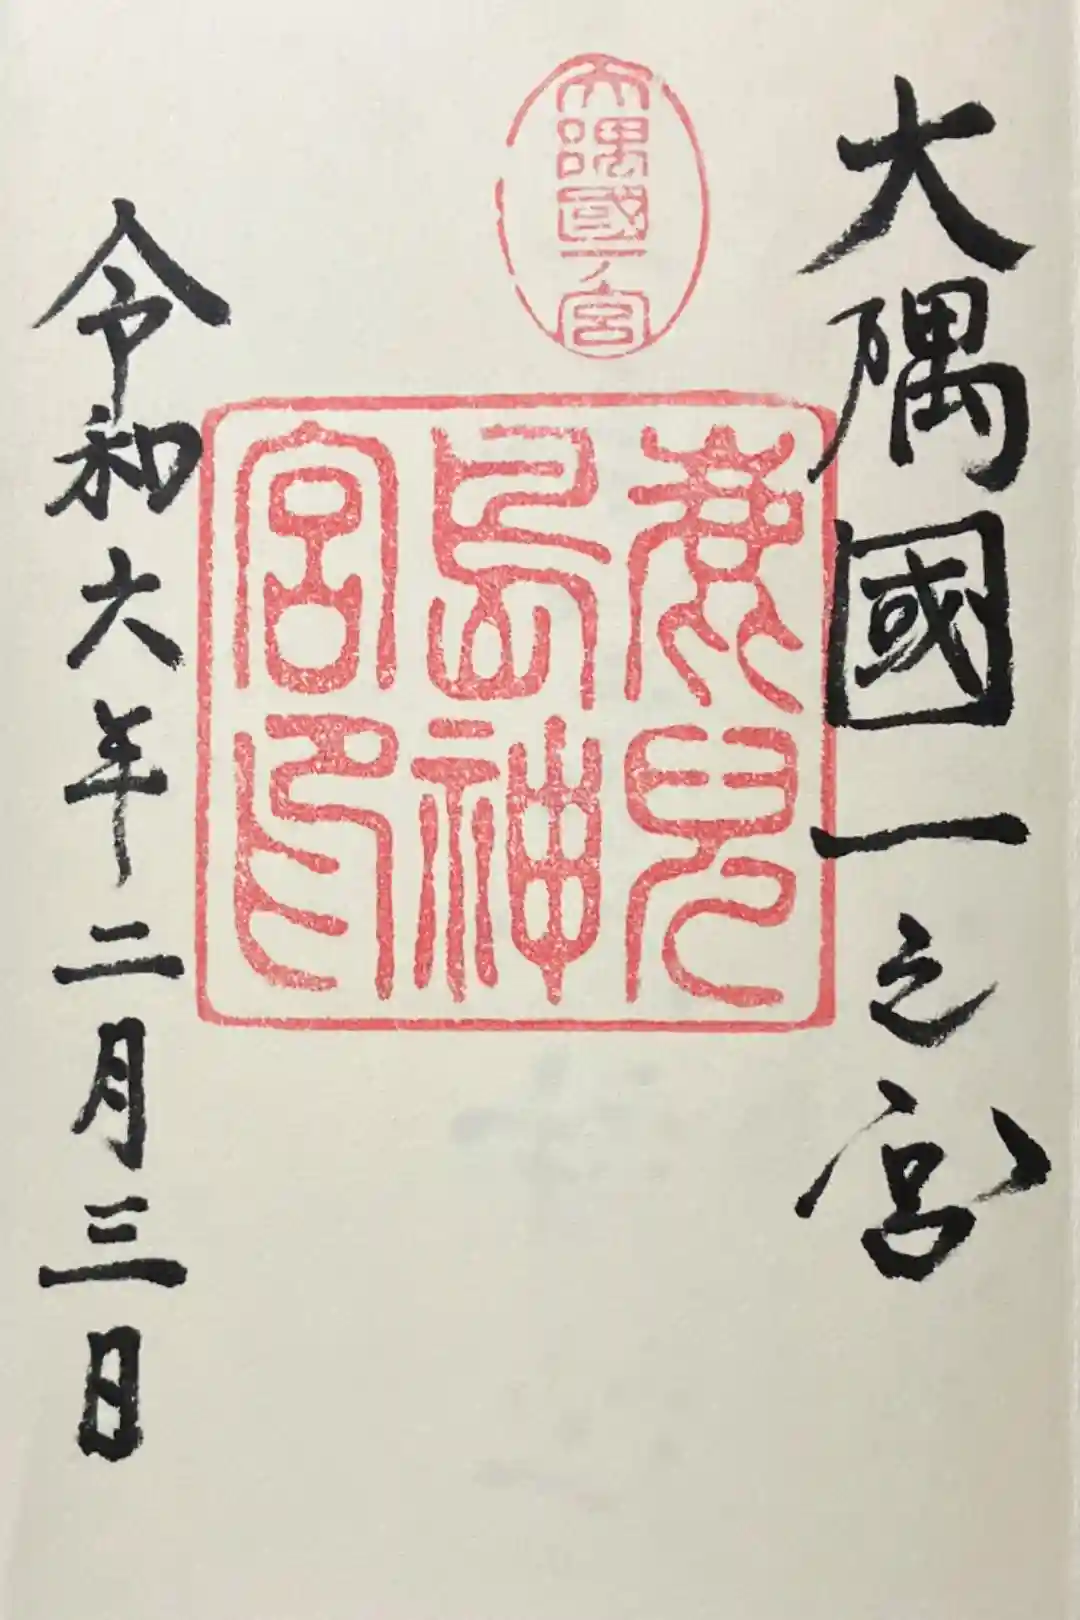 大隅國一之宮
大隅國一ノ宮
鹿兒
島神
宮印
令和六年二月三日